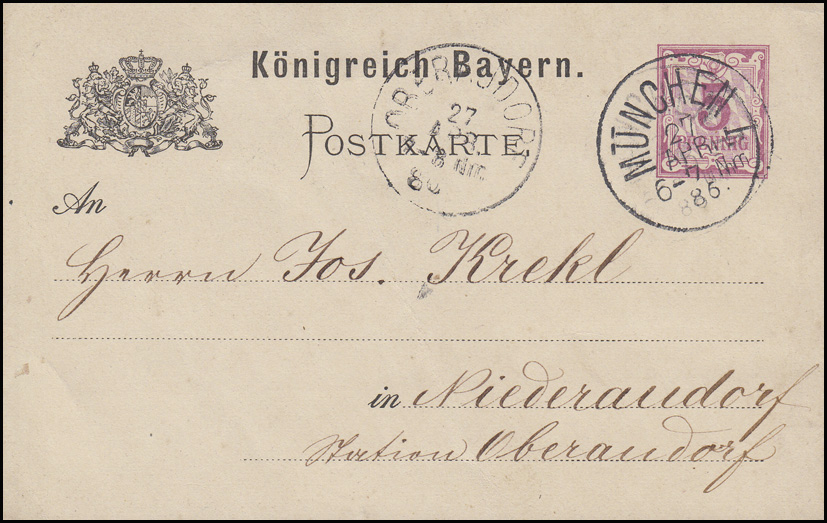 Königreich Bayern.
POSTKARTE.
OBERAUDORF
27
APR
8 Nm.
86
MÜNCHEN I
27
APR.
6-7 Nm.
86.
5
PFENNIG
An
Herrn Jos. Krekl
in Niederaudorf
Station Oberaudorf